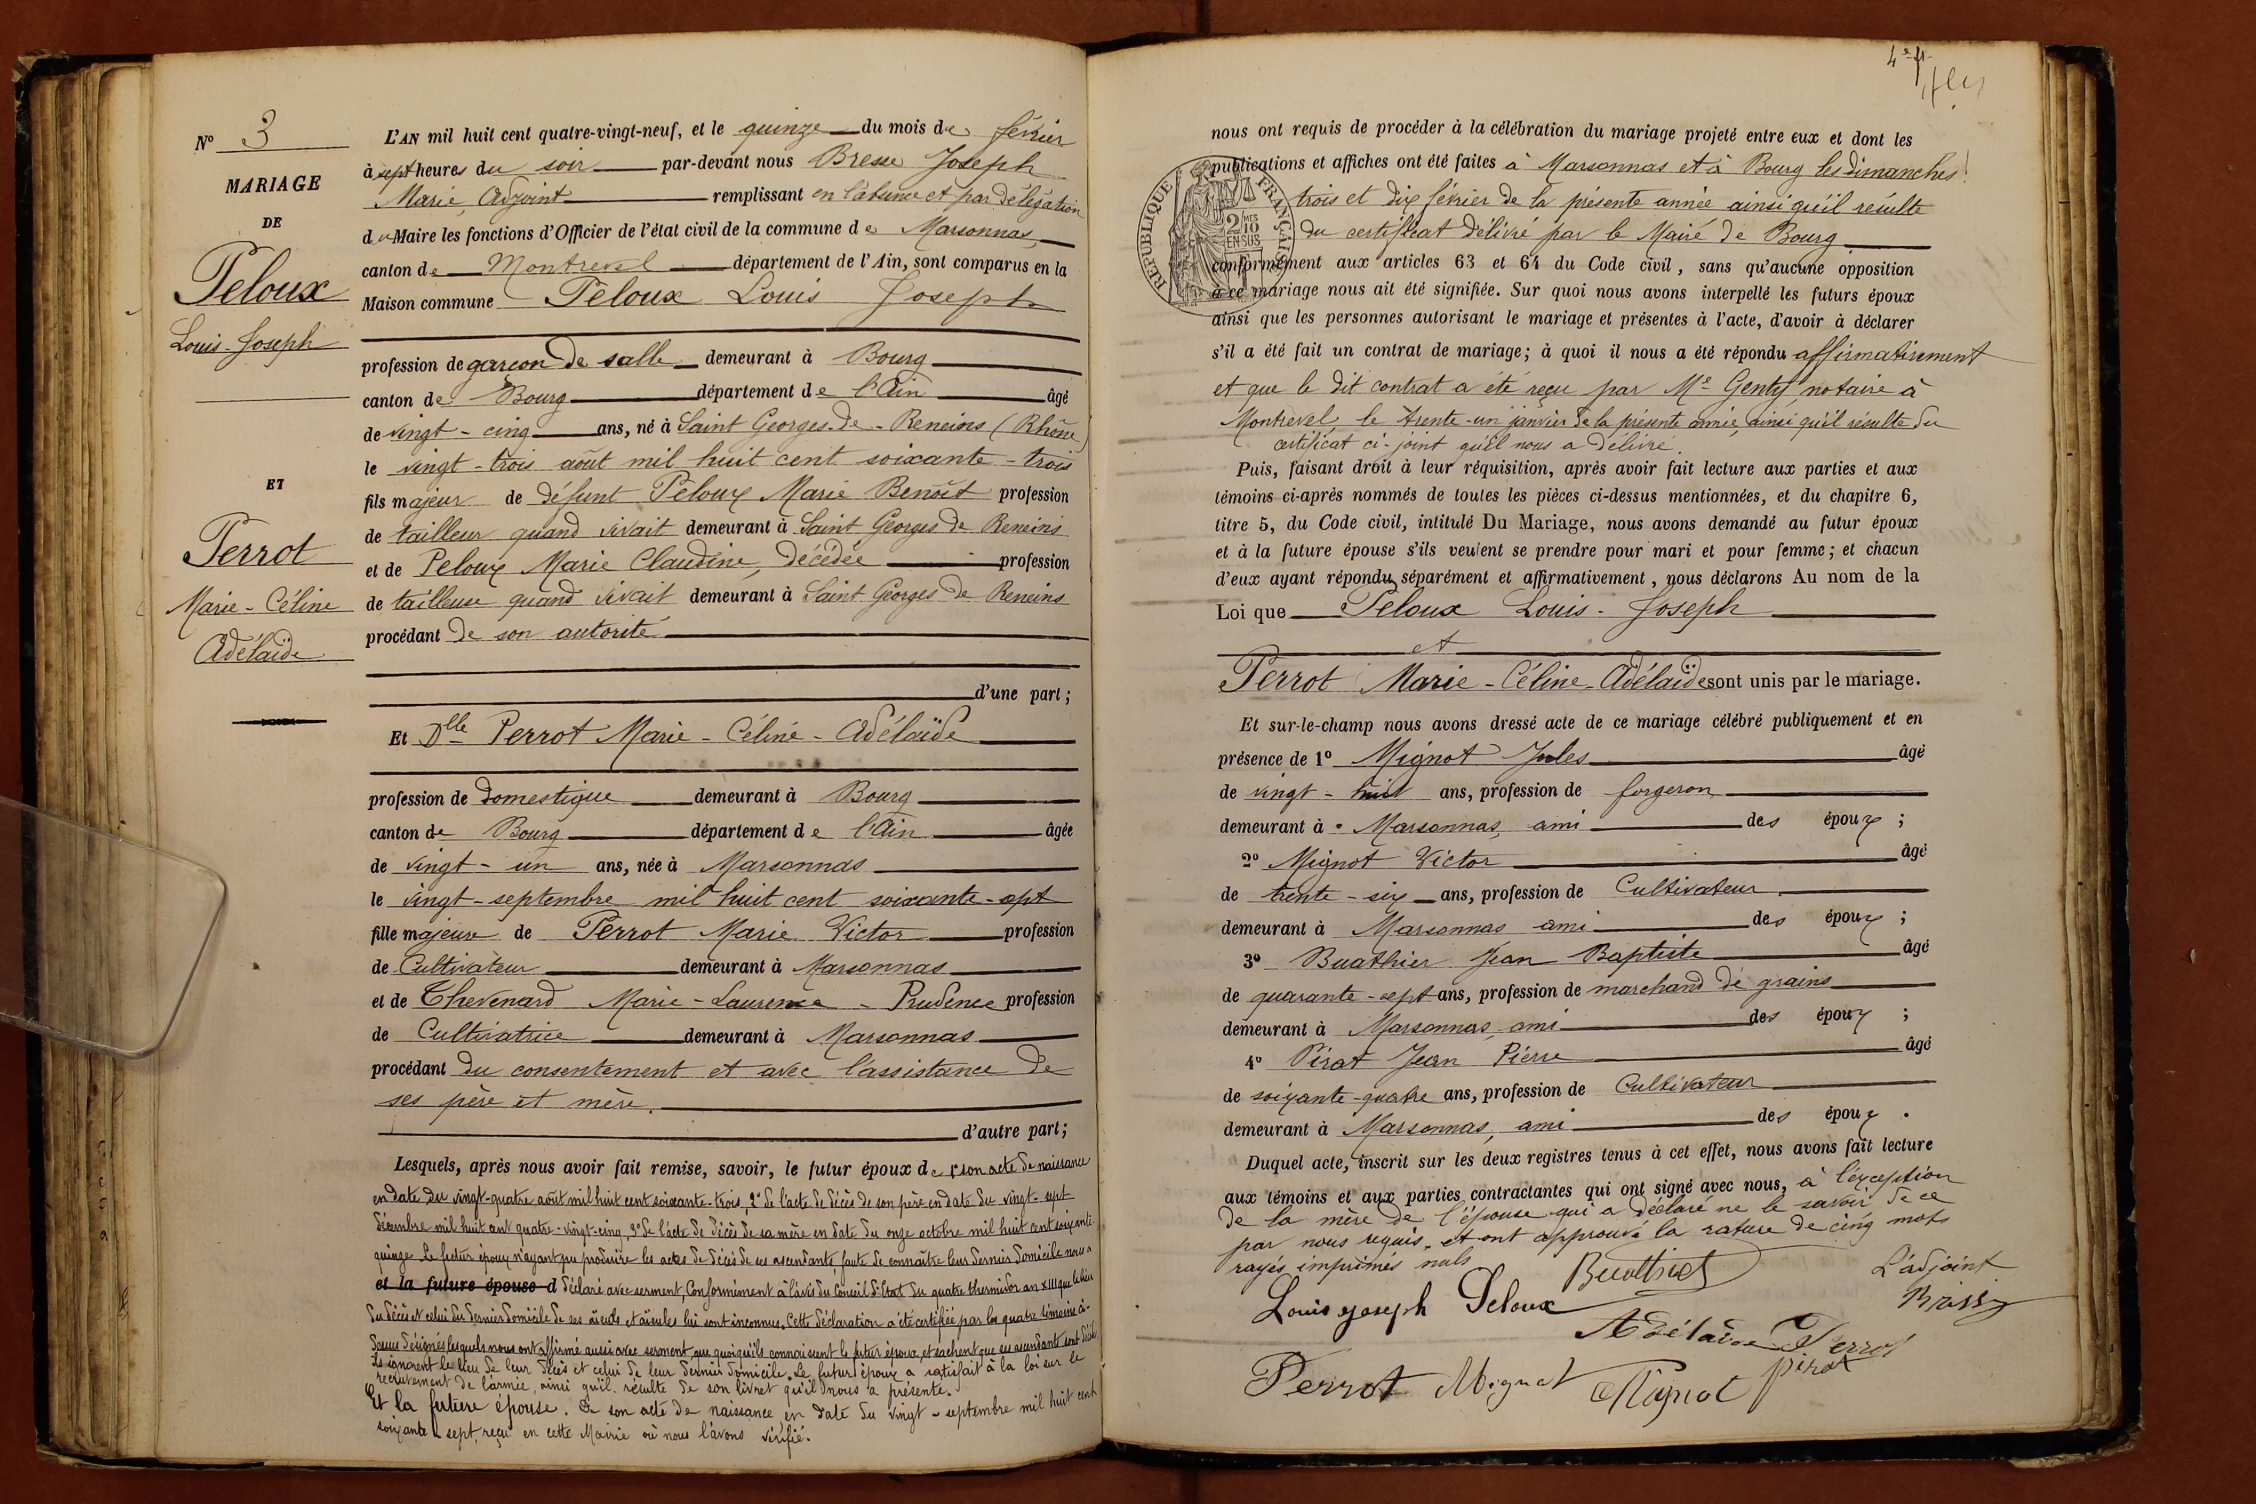 N° 3
MARIAGE
DE
Peloux
Louis-Joseph
ET
Perrot
Marie-Céline
Adélaïde
L'AN mil huit cent quatre-vingt-neuf, et le quinze du mois de février
à sept heures du soir par-devant nous Bresse Joseph
Marie, Adjoint remplissant en l'absence et par délégation
du Maire les fonctions d'Officier de l'état civil de la commune de Marsonnas
canton de Montrevel département de l'Ain, sont comparus en la
Maison commune Peloux Louis Joseph
profession de garçon de salle demeurant à Bourg
canton de Bourg département de l'Ain âgé
de vingt-cinq ans, né à Saint Georges-de-Reneins (Rhône)
le vingt-trois août mil huit cent soixante-trois
fils majeur de défunt Peloux Marie Benoît profession
de tailleur quand vivait demeurant à Saint Georges de Reneins
et de Peloux Marie Claudine, décédée profession
de tailleuse quand vivait demeurant à Saint Georges de Reneins
procédant de son autorité
d'une part;
Et Dlle Perrot Marie-Céline-Adélaïde
profession de domestique demeurant à Bourg
canton de Bourg département de l'Ain âgée
de vingt-un ans, née à Marsonnas
le vingt-septembre mil huit cent soixante-sept
fille majeure de Perrot Marie Victor profession
de Cultivateur demeurant à Marsonnas
et de Thevenard Marie-Laurence-Prudence profession
de Cultivatrice demeurant à Marsonnas
procédant du consentement et avec l'assistance de
ses père et mère.
d'autre part;
Lesquels, après nous avoir fait remise, savoir, le futur époux de 1° son acte de naissance
en date du vingt-quatre août mil huit cent soixante-trois, 2° de l'acte de décès de son père en date du vingt-sept
décembre mil huit cent quatre-vingt-cinq, 3° de l'acte de décès de sa mère en date du onze octobre mil huit cent soixante
quinze. Le futur époux n'ayant pu produire les actes de décès de ses ascendants, faute de connaître leur dernier domicile nous a
et la future épouse d déclaré avec serment, Conformément à l'avis du Conseil d'Etat du quatre thermidor an XIII que le lieu
du décès et celui du dernier domicile de ses aïeuls et aïeules lui sont inconnus. Cette déclaration a été certifiée par les quatre témoins ci-
dessous désignés lesquels nous ont affirmé aussi avec serment, que quoiqu'ils connaissent le futur époux, et sachent que ses ascendants sont décédés
ils ignorent le lieu de leur décès et celui de leur dernier domicile. Le futur époux a satisfait à la loi sur le
recrutement de l'armée, ainsi qu'il résulte de son livret qu'il nous a présenté.
Et la future épouse. De son acte de naissance en date du vingt-septembre mil huit cent
soixante-sept, reçu en cette Mairie où nous l'avons vérifié.
4e f.
nous ont requis de procéder à la célébration du mariage projeté entre eux et dont les
publications et affiches ont été faites à Marsonnas et à Bourg les dimanches
trois et dix février de la présente année ainsi qu'il résulte
du certificat délivré par le Maire de Bourg
REPUBLIQUE FRANÇAISE
2 MES 10 EN SUS
conformément aux articles 63 et 64 du Code civil, sans qu'aucune opposition
à ce mariage nous ait été signifiée. Sur quoi nous avons interpellé les futurs époux
ainsi que les personnes autorisant le mariage et présentes à l'acte, d'avoir à déclarer
s'il a été fait un contrat de mariage; à quoi il nous a été répondu affirmativement
et que le dit contrat a été reçu par Me Genty, notaire à
Montrevel le trente-un janvier de la présente année, ainsi qu'il résulte du
certificat ci-joint qu'il nous a délivré.
Puis, faisant droit à leur réquisition, après avoir fait lecture aux parties et aux
témoins ci-après nommés de toutes les pièces ci-dessus mentionnées, et du chapitre 6,
titre 5, du Code civil, intitulé Du Mariage, nous avons demandé au futur époux
et à la future épouse s'ils veulent se prendre pour mari et pour femme; et chacun
d'eux ayant répondu séparément et affirmativement, nous déclarons Au nom de la
Loi que Peloux Louis-Joseph
et
Perrot Marie-Céline-Adélaïde sont unis par le mariage.
Et sur-le-champ nous avons dressé acte de ce mariage célébré publiquement et en
présence de 1° Mignot Jules âgé
de vingt-huit ans, profession de forgeron
demeurant à Marsonnas, ami des époux;
2° Mignot Victor âgé
de trente-six ans, profession de Cultivateur
demeurant à Marsonnas ami des époux;
3° Buathier Jean Baptiste âgé
de quarante-sept ans, profession de marchand de grains
demeurant à Marsonnas, ami des époux;
4° Pirat Jean Pierre âgé
de soixante-quatre ans, profession de Cultivateur
demeurant à Marsonnas, ami des époux.
Duquel acte, inscrit sur les deux registres tenus à cet effet, nous avons fait lecture
aux témoins et aux parties contractantes qui ont signé avec nous, à l'exception
de la mère de l'épouse qui a déclaré ne le savoir de ce
par nous requis, et ont approuvé la rature de cinq mots
rayés imprimés nuls
Louis joseph Peloux
Buathier
L'adjoint
Adélaïde Perrot
Perrot Mignot Mignot Pirat